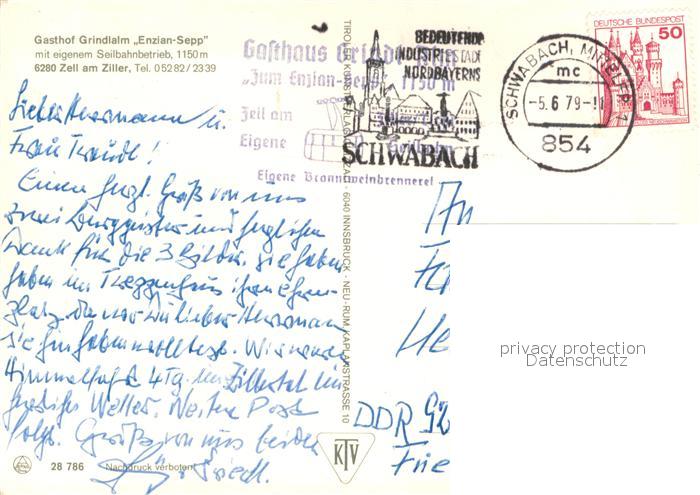 Gasthof Grindlalm „Enzian-Sepp"
mit eigenem Seilbahnbetrieb, 1150 m
6280 Zell am Ziller, Tel. 05282/2339
Gasthaus Grindlalm
„Zum Enzian-Sepp" 1150 m
Zell am
Eigene Seilbahn
Eigene Branntweinbrennerei
BEDEUTENDE
INDUSTRIESTADT
NORDBAYERNS
SCHWABACH
SCHWABACH, MITTELFR 1
mc
-5.6.79-11
854
DEUTSCHE BUNDESPOST
50
Lieber Hermann u.
Frau Traudl!
Einen herzl. Gruß von uns
zwei Berggeister und herzlichen
Dank für die 3 Bilder. Sie haben
haben im Treppenhaus ihren Ehren-
platz, die von Dir lieber Hermann
Wir waren
Himmelfahrt 4 Tg. im Zillertal bei
Wetter. Weitere Post
folgt. Grüße von uns beiden
TIROLER KUNSTVERLAG 6040 INNSBRUCK - NEU-RUM, KAPLANSTRASSE 10
An
Fa
He
DDR 92
Frie
28 786 Nachdruck verboten
KTV
privacy protection
Datenschutz